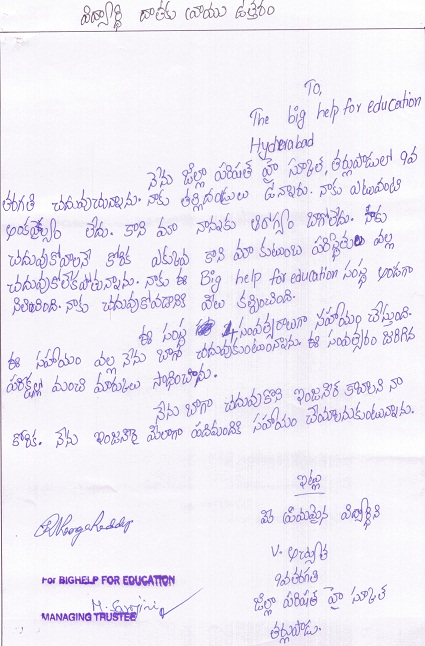 విద్యార్థి దాతకు వ్రాయు ఉత్తరం
To,
The big help for education
Hyderabad
నేను జిల్లా పరిషత్ హై స్కూల్, తర్లుపాడులో 9వ
తరగతి చదువుచున్నాను. నాకు తల్లిదండ్రులు ఉన్నారు. నాకు ఎటువంటి
లేదు. కాని మా నాన్నకు ఆరోగ్యం బాగోలేదు. నాకు
చదువుకోవాలనే కోరిక ఎక్కువ కాని మా కుటుంబ పరిస్థితుల వల్ల
చదువుకోలేకపోతున్నాను. నాకు ఈ Big help for education సంస్థ అండగా
నిలిచింది. నాకు చదువుకోవడానికి వీలు కల్పించింది.
ఈ సంస్థ 4 సంవత్సరాలుగా సహాయం చేస్తుంది.
ఈ సహాయం వల్ల నేను బాగా చదువుకుంటున్నాను. ఈ సంవత్సరం జరిగిన
పరీక్షల్లో మంచి మార్కులు సాధించాను.
నేను బాగా చదువుకొని ఇంజనీర్ కావాలని నా
కోరిక. నేను ఇంజనీర్ పదిమందికి సహాయం చేయాలనుకుంటున్నాను.
ఇట్లు
మీ ప్రియమైన విద్యార్థిని
V. అచ్యుత
9వ తరగతి
జిల్లా పరిషత్ హై స్కూల్
తర్లుపాడు.
For BIGHELP FOR EDUCATION
MANAGING TRUSTEE